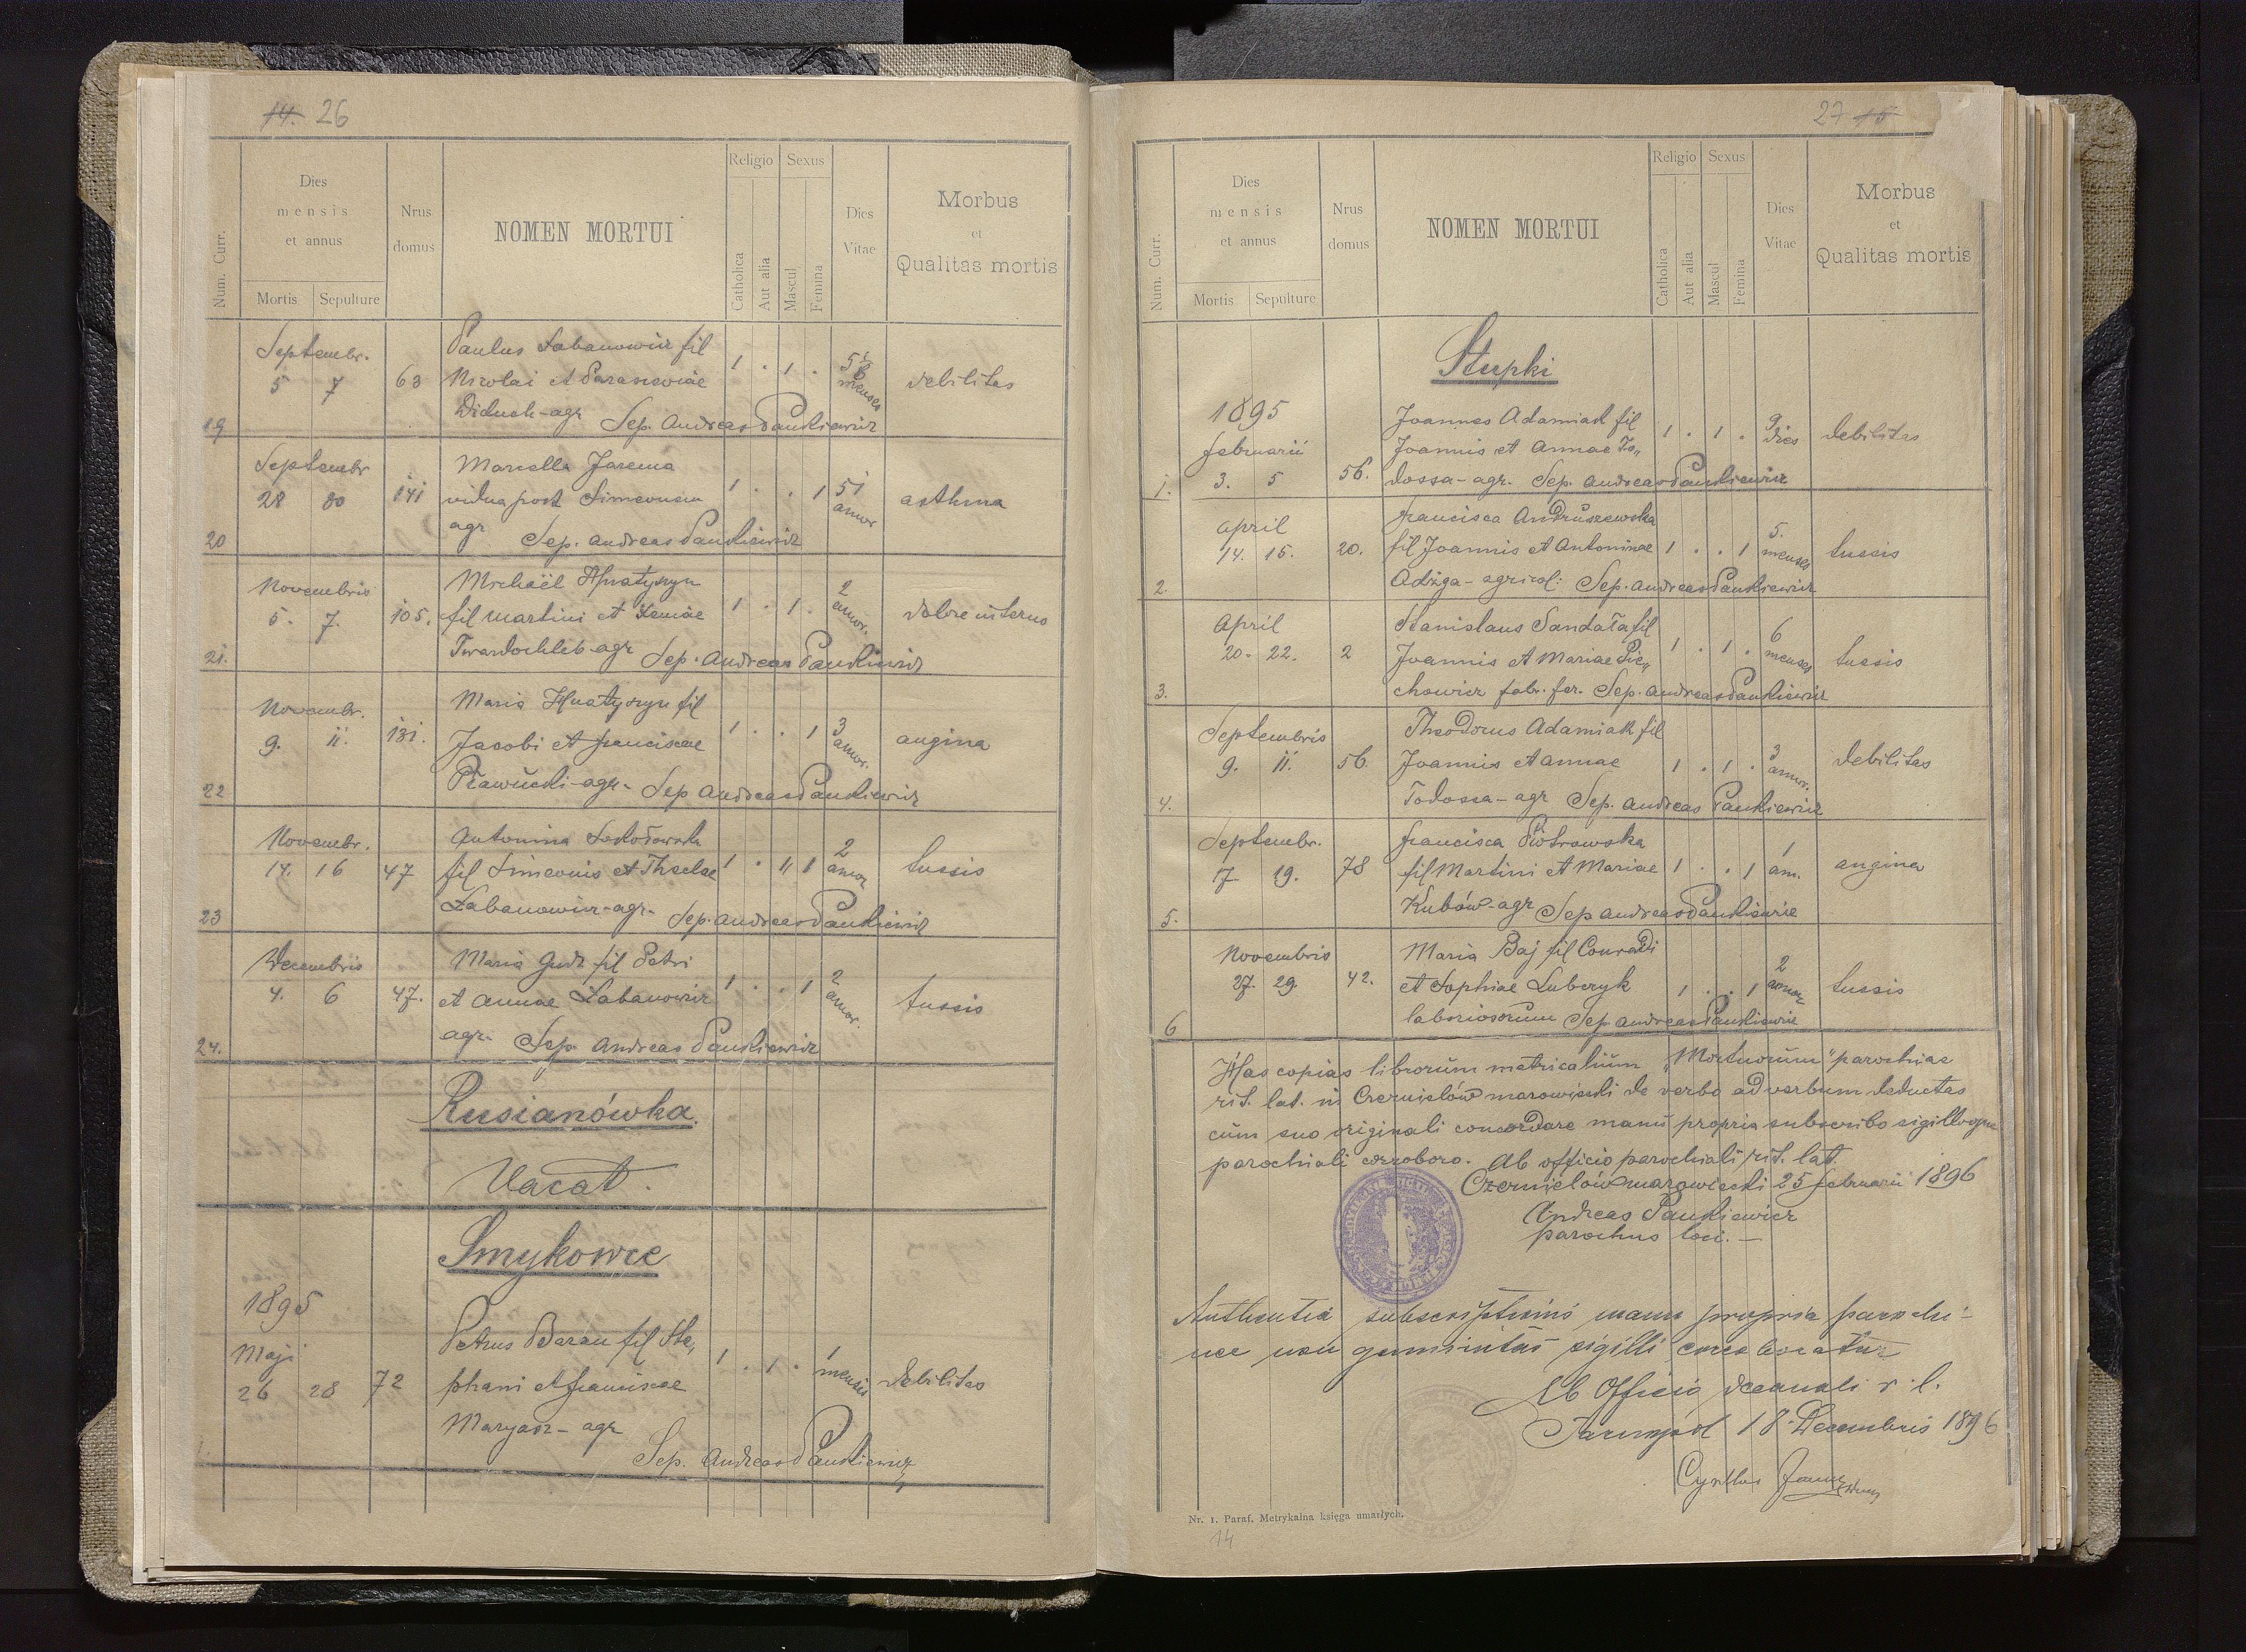 14. 26
Num. Curr.
Dies mensis et annus
Mortis Sepulture
Nrus domus
NOMEN MORTUI
Religio
Catholica Aut alia
Sexus
Mascul Femina
Dies Vitae
Morbus et Qualitas mortis
Septembr. Paulus Łabanowicz fil
5 7 63 Nicolai et Parasceviae 1 . 1 . menses debilitas
19 Diduch - agr Sep. Andreas Pankiewicz
Septembr Marcella Jarema
28 30 141 vidua post Simeonem 1 . . 1 51 annor asthma
20 agr Sep. Andreas Pankiewicz
Novembris Michaël Hnatyszyn
5. 7. 105. fil Martini et Xeniae 1 . 1 . 2 annor. dolore interno
21. Twardochleb - agr Sep. Andreas Pankiewicz
Novembr. Maria Hnatyszyn fil
9. 11. 131. Jacobi et Franciscae 1 . . 1 3 annor. angina
22 Prawucki - agr. Sep Andreas Pankiewicz
Novembr. Antonina
14. 16 47 fil Simeonis et Theclae 1 . 1 2 annor tussis
23 Łabanowicz - agr. Sep. Andreas Pankiewicz
Decembris Maria Gudz fil Petri
4. 6 47. et Annae Łabanowicz 1 . . 1 2 annor. tussis
24. agr. Sep. Andreas Pankiewicz
Rusianówka.
Vacat.
Smykowce
1895
Maji Petrus Baran fil Ste„
26 28 72 phani et Franciscae 1 . 1 . 1 mensis debilitas
1. Maryasz - agr
Sep. Andreas Pankiewicz
27 15
Num. Curr.
Dies mensis et annus
Mortis Sepulture
Nrus domus
NOMEN MORTUI
Religio
Catholica Aut alia
Sexus
Mascul Femina
Dies Vitae
Morbus et Qualitas mortis
Stupki
1895 Joannes Adamiak fil
Februarii Joannis et Annae To„ 1 . 1 . 9 dies debilitas
1. 3. 5 56. dossa - agr. Sep. Andreas Pankiewicz
April Francisca Andruszewska
14. 15. 20. fil Joannis et Antoninae 1 . . 1 5. menses tussis
2. Adżiga - agricol: Sep. Andreas Pankiewicz
April Stanislaus Sandała fil
20. 22. 2 Joannis et Mariae Pie„ 1 . 1 . 6 menses tussis
3. chowicz fabr. fer. Sep. Andreas Pankiewicz
Septembris Theodorus Adamiak fil
9. 11. 56. Joannis et Annae 1 . 1 . 3 annor. debilitas
4. Todossa - agr Sep. Andreas Pankiewicz
Septembr. Francisca Piotrowska
17 19. 78 fil Martini et Mariae 1 . . 1 1 an. angina
5. Kubów - agr Sep Andreas Pankiewicz
Novembris Maria Baj fil Conradi
27. 29. 42. et Sophiae Lubczyk 1 . . 1 2 annor tussis
6 laboriosorum Sep Andreas Pankiewicz
Has copias librorum metricalium „Mortuorum" parochiae
rit. lat. in Czernielów mazowiecki de verbo ad verbum deductas
cum suo originali concordare manu propria subscribo sigilloque
parochiali corroboro. Ab officio parochiali rit. lat.
Czernielów mazowiecki 25 Februarii 1896
Andreas Pankiewicz
parochus loci. —
subscriptionis manu propria parochi
nec non genuinitas sigilli corroboratur
Ab Officio decanali r. l.
Tarnopol 18 Decembris 1896
Nr. 1. Paraf. Metrykalna księga umarłych.
14